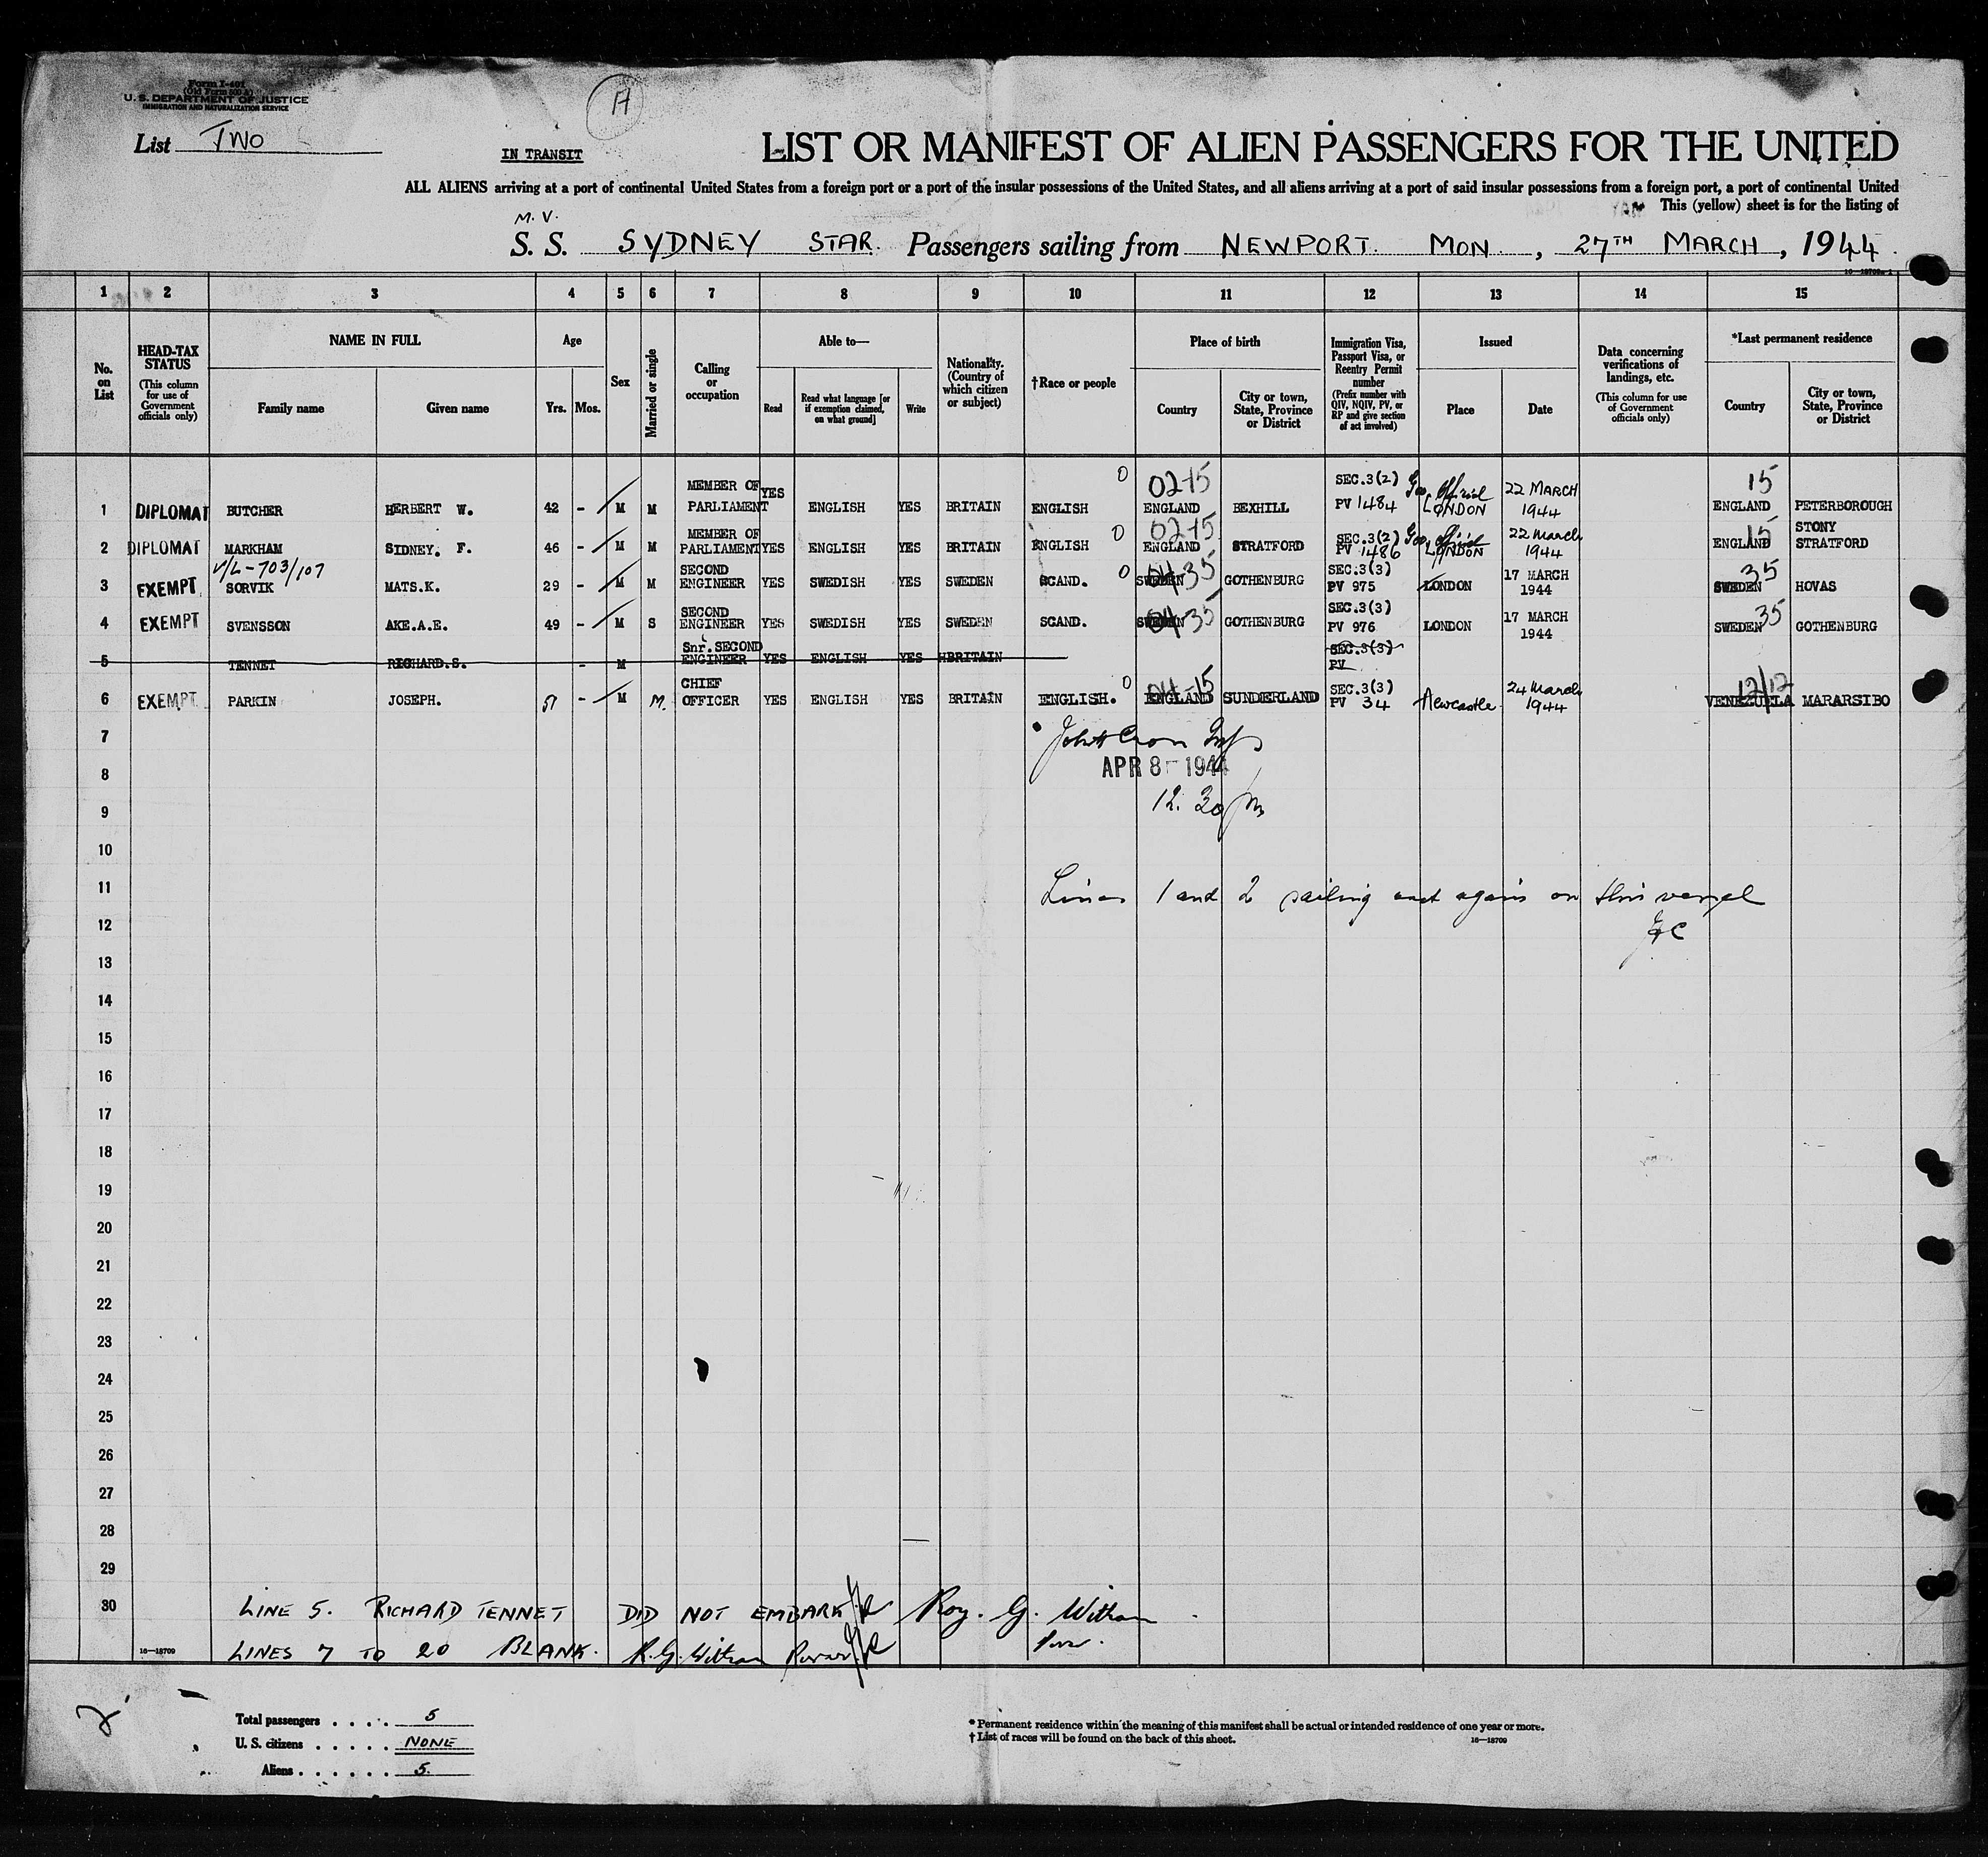 Form I-401
(Old Form 500 A)
U. S. DEPARTMENT OF JUSTICE
IMMIGRATION AND NATURALIZATION SERVICE
A
List TWO
IN TRANSIT
LIST OR MANIFEST OF ALIEN PASSENGERS FOR THE UNITED
ALL ALIENS arriving at a port of continental United States from a foreign port or a port of the insular possessions of the United States, and all aliens arriving at a port of said insular possessions from a foreign port, a port of continental United
This (yellow) sheet is for the listing of
M. V.
S. S. SYDNEY STAR. Passengers sailing from NEWPORT. MON., 27TH MARCH, 1944
1 2 3 4 5 6 7 8 9 10 11 12 13 14 15
No. on List
HEAD-TAX STATUS (This column for use of Government officials only)
NAME IN FULL
Family name Given name
Age
Yrs. Mos.
Sex
Married or single
Calling or occupation
Able to—
Read Read what language [or if exemption claimed, on what ground] Write
Nationality. (Country of which citizen or subject)
†Race or people
Place of birth
Country City or town, State, Province or District
Immigration Visa, Passport Visa, or Reentry Permit number (Prefix number with QIV, NQIV, PV, or RP and give section of act involved)
Issued
Place Date
Data concerning verifications of landings, etc. (This column for use of Government officials only)
*Last permanent residence
Country City or town, State, Province or District
1 DIPLOMAT BUTCHER HERBERT W. 42 - M M MEMBER OF PARLIAMENT YES ENGLISH YES BRITAIN ENGLISH 0 02-15 ENGLAND BEXHILL SEC.3(2) PV 1484 Official LONDON 22 MARCH 1944 15 ENGLAND PETERBOROUGH
2 DIPLOMAT MARKHAM SIDNEY. F. 46 - M M MEMBER OF PARLIAMENT YES ENGLISH YES BRITAIN ENGLISH 0 02-15 ENGLAND STRATFORD SEC.3(2) PV 1486 Official LONDON 22 March 1944 15 ENGLAND STONY STRATFORD
V/L-703/107
3 EXEMPT SORVIK MATS.K. 29 - M M SECOND ENGINEER YES SWEDISH YES SWEDEN SCAND. 0 04-35 SWEDEN GOTHENBURG SEC.3(3) PV 975 LONDON 17 MARCH 1944 35 SWEDEN HOVAS
4 EXEMPT SVENSSON AKE.A.E. 49 - M S SECOND ENGINEER YES SWEDISH YES SWEDEN SCAND. 04-35 SWEDEN GOTHENBURG SEC.3(3) PV 976 LONDON 17 MARCH 1944 35 SWEDEN GOTHENBURG
5 TENNET RICHARD.S. - M Snr. SECOND ENGINEER YES ENGLISH YES BRITAIN SEC.3(3) PV
6 EXEMPT PARKIN JOSEPH. 51 - M M. CHIEF OFFICER YES ENGLISH YES BRITAIN ENGLISH. 0 04-15 ENGLAND SUNDERLAND SEC.3(3) PV 34 Newcastle 24 March 1944 12/12 VENEZUELA MARARSIBO
7
8 APR 8 - 1944
9 12.30 pm
10
11 Lines 1 and 2 sailing out again on this vessel
12 JC
13
14
15
16
17
18
19
20
21
22
23
24
25
26
27
28
29
30 LINE 5. RICHARD TENNET DID NOT EMBARK Roy. G. Witham
16—18709 LINES 7 TO 20 BLANK. R.G. Witham Purser
Total passengers . . . . 5
U. S. citizens . . . . . NONE
Aliens . . . . . . 5.
* Permanent residence within the meaning of this manifest shall be actual or intended residence of one year or more.
† List of races will be found on the back of this sheet. 16—18709